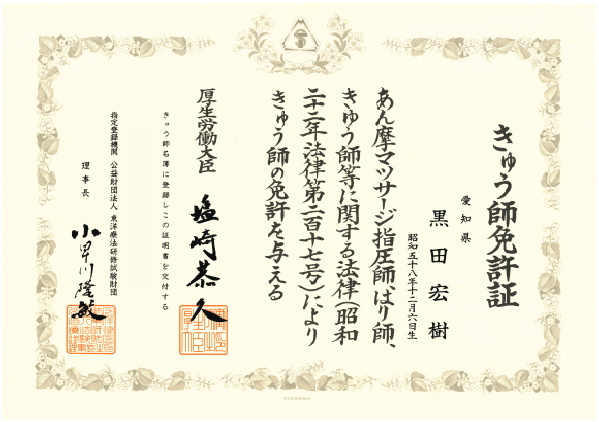 きゅう師免許証
愛知県
黒田宏樹
昭和五十八年十二月六日生
あん摩マツサージ指圧師、はり師、
きゅう師等に関する法律(昭和
二十二年法律第二百十七号)により
きゅう師の免許を与える
厚生労働大臣 塩崎恭久
きゅう師名簿に登録しこの証明書を交付する
指定登録機関 公益財団法人 東洋療法研修試験財団
理事長 小早川隆敏